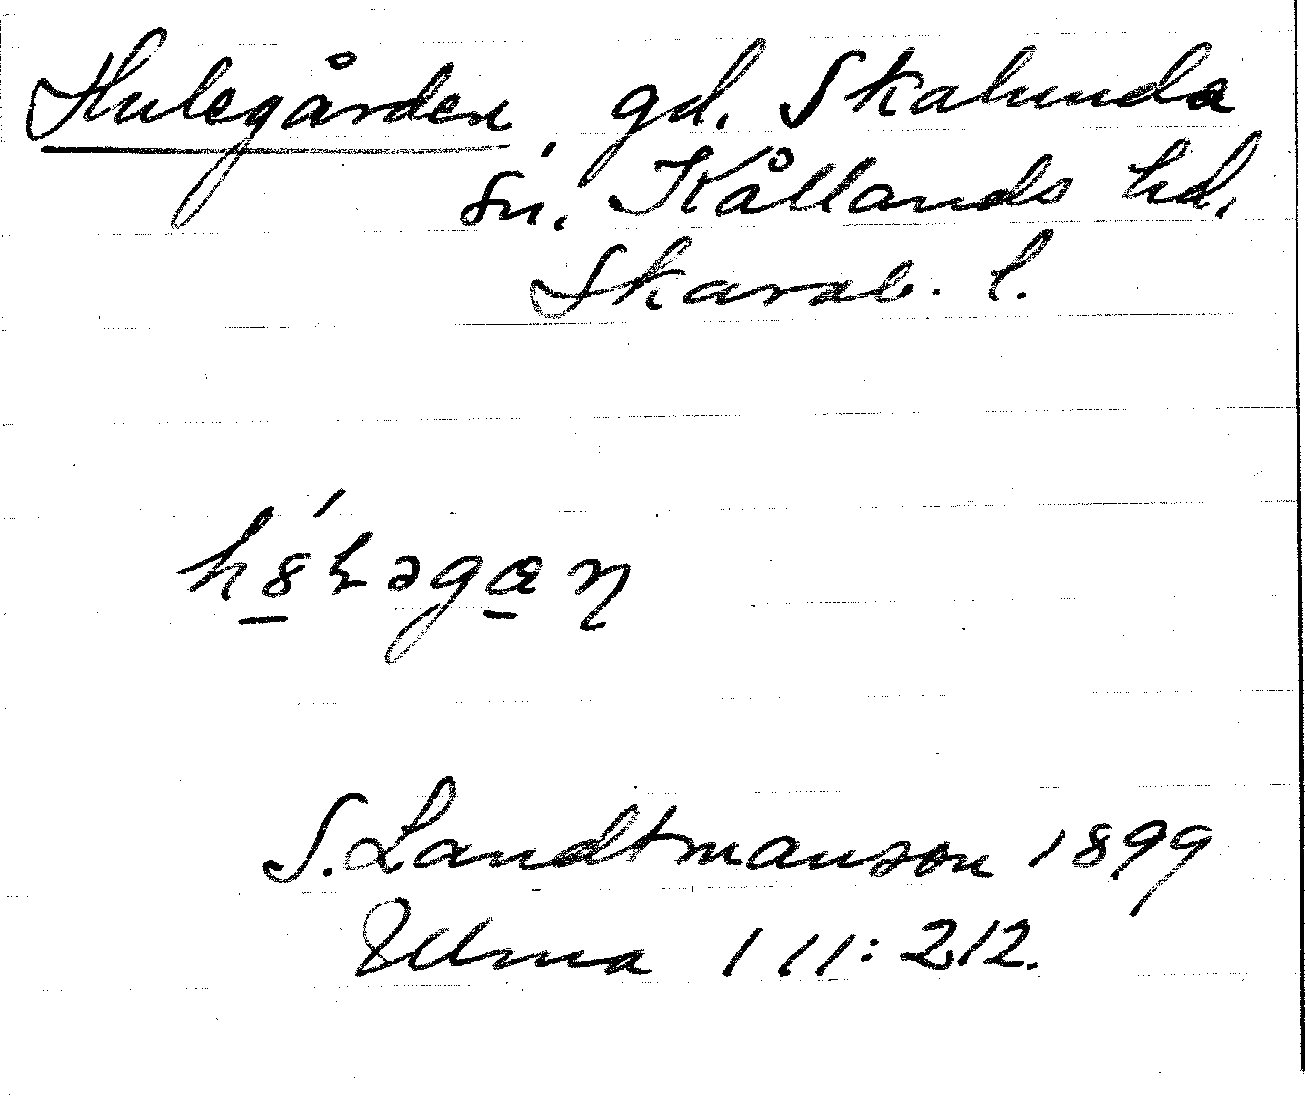 Hulegården, gd. Skalunda
sn. Kållands hd.
Skarab. l.
S. Landtmanson 1899
Ulma 111:212.